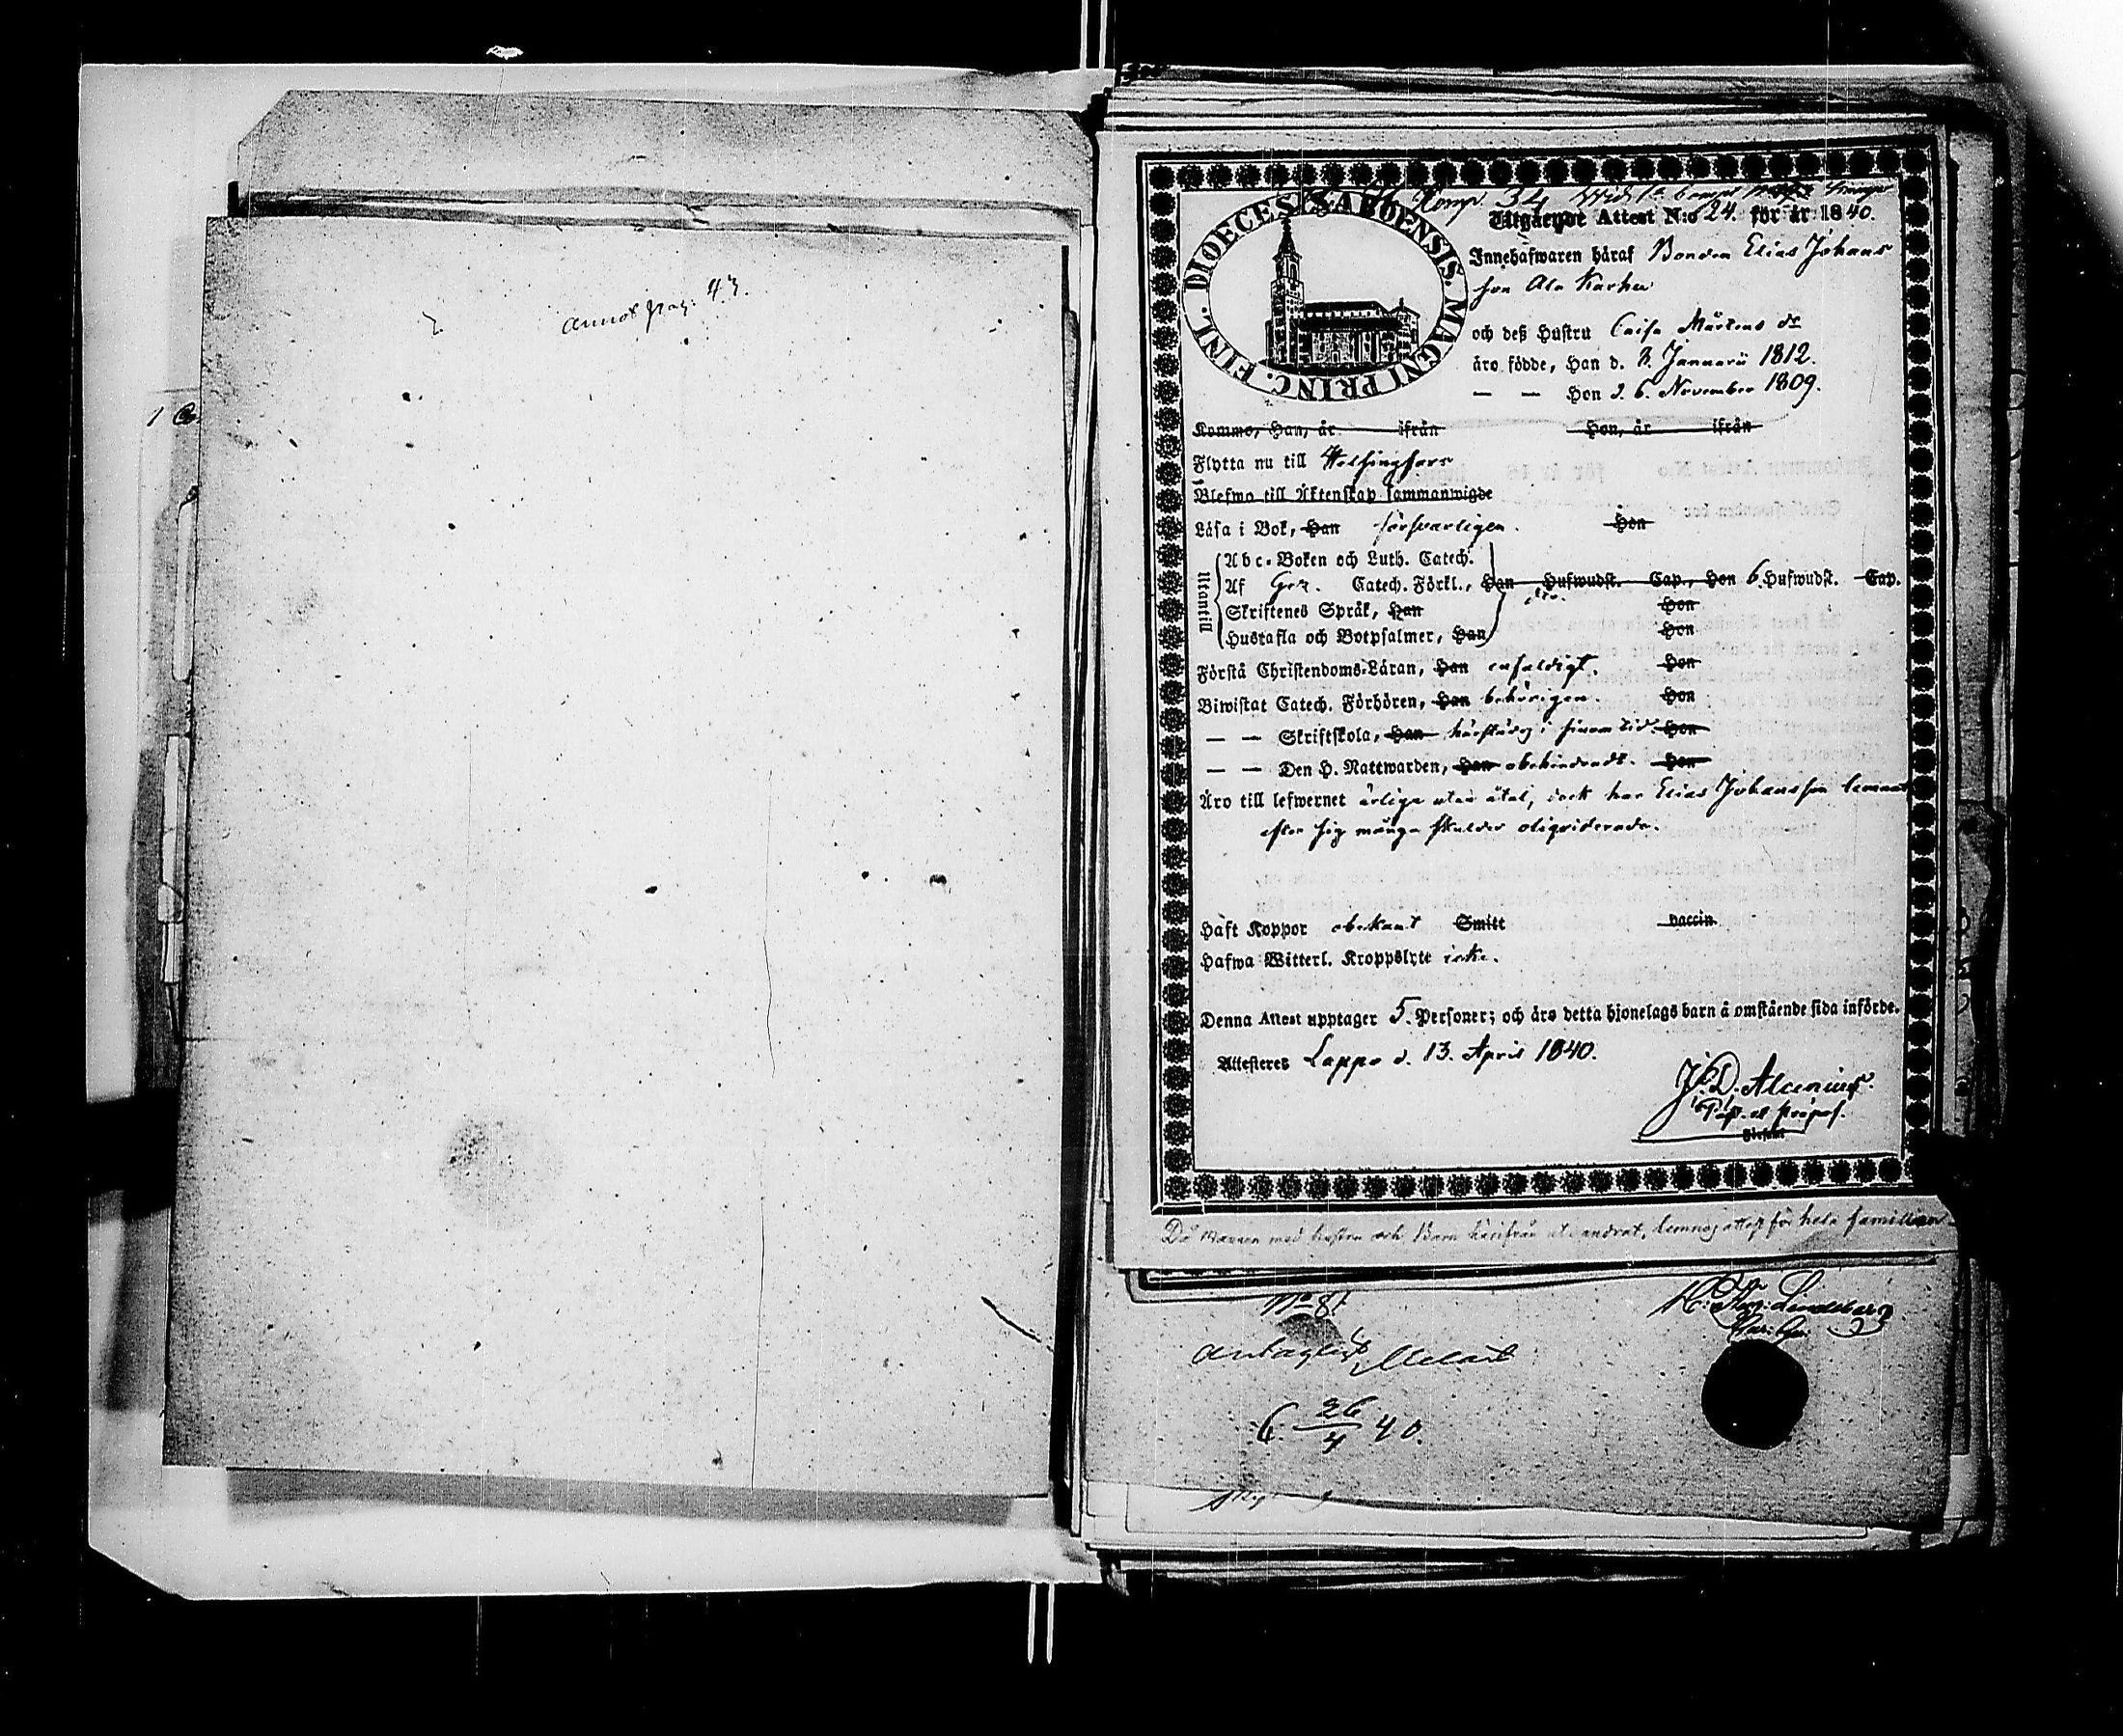 Annot pag: 43.
DIOECESIS ABOENSIS. MAGNI PRINC. FINL.
Komp. 34
Utgående Attest N:o 24. för år 1840.
Innehafwaren häraf Bonden Elias Johans
son Ala Karhu
och deß Hustru Caisa Mårtens dr
äro födde, Han d. 8. Januarii 1812.
— — Hon d. 6. November 1809.
Kommo, Han, år ifrån Hon, år ifrån
Flytta nu till Helsingfors
Blefwo till Äktenskap sammanwigde
Läsa i Bok, Han försvarligen. Hon
Utantill
Abc-Boken och Luth. Catech.
Af Catech. Förkl., Han Hufwudst. Cap., Hon 6. Hufwudst. Cap.
Skriftenes Språk, Han Hon
Hustafla och Botpsalmer, Han Hon
Förstå Christendoms-Läran, Han enfaldigt. Hon
Biwistat Catech. Förhören, Han behörigen. Hon
— — Skriftskola, Han härstädes i sinom tid. Hon
— — Den H. Nattwarden, Han obehindradt. Hon
Äro till lefwernet ärliga utan åtal, dock har Elias Johansson lemnat
efter sig många skulder oliqviderade.
Haft Koppor obekant Smitt vaccin
Hafwa Witterl. Kroppslyte icke.
Denna Attest upptager 5. Personer; och äro detta hjonelags barn å omstående sida införde.
Attesteres Lappo d. 13. April 1840.
J. D. Alcenius.
Då Mannen med hustru och Barn härifrån utvandrat, lemnas attest för hela familien
No 81.
Lindeberg
6. 26/4 40.